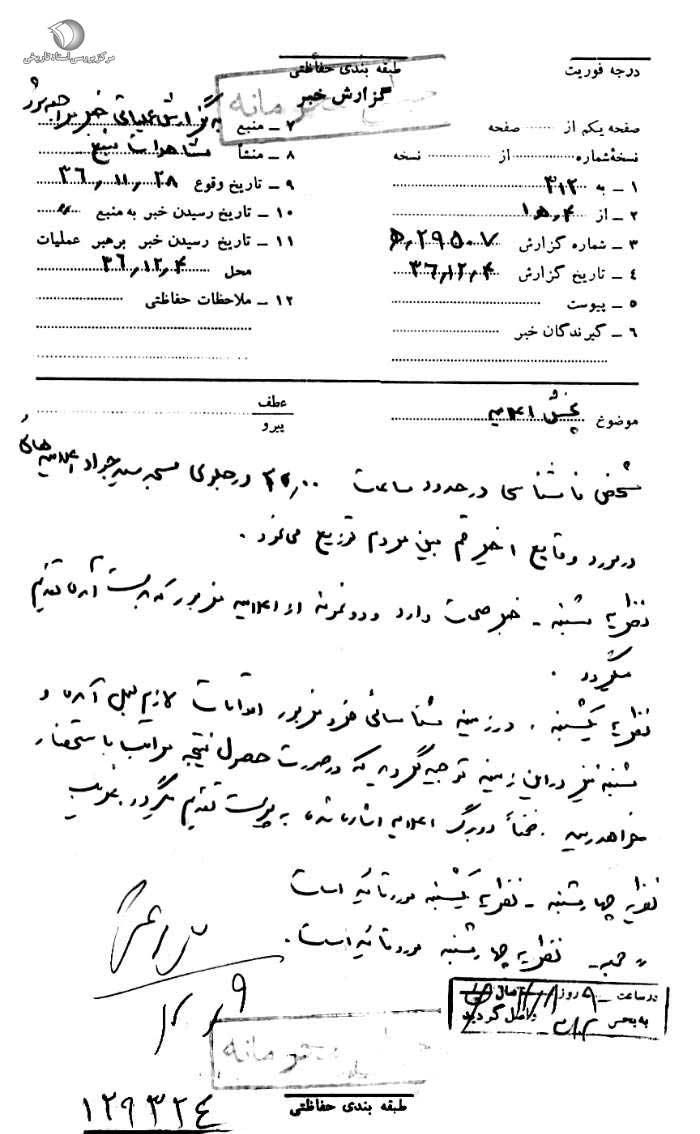 مرکز بررسی اسناد تاریخی
درجه فوریت
طبقه بندی حفاظتی
خیلی محرمانه
گزارش خبر
صفحه یکم از صفحه
نسخه شماره از نسخه
۱ ـ به ۳۱۲
۲ ـ از
۳ ـ شماره گزارش
۴ ـ تاریخ گزارش ۳۶٫۱۲٫۴
۵ ـ پیوست
۶ ـ گیرندگان خبر
۷ ـ منبع به گزارش عملیاتی خبر مراجعه شود
۸ ـ منشأ مشاهدات منبع
۹ ـ تاریخ وقوع ۳۶٫۱۱٫۲۸
۱۰ ـ تاریخ رسیدن خبر به منبع 〃
۱۱ ـ تاریخ رسیدن خبر برهبر عملیات
محل ۳۶٫۱۲٫۴
۱۲ ـ ملاحظات حفاظتی
موضوع پخش اعلامیه
عطف
پیرو
شخص ناشناسی در حدود ساعت ۲۰٫۰۰ در جلوی مسجد سید جواد اعلامیه هائی
در مورد وقایع اخیر قم بین مردم توزیع مینمود .
نظریه شنبه ـ خبر صحت دارد و دو نمونه از اعلامیه مزبور که بدست آمده تقدیم
میگردد .
نظریه یکشنبه . در زمینه شناسائی فرد مزبور اقدامات لازم بعمل آمده و
شنبه نیز در این زمینه توجیه گردیده که در صورت حصول نتیجه مراتب باستحضار
خواهد رسید . ضمناً دو برگ اعلامیه اشاره شده به پیوست تقدیم میگردد.
نظریه چهارشنبه ـ نظریه یکشنبه مورد تائید است
〃 جمعه ـ نظریه چهارشنبه مورد تائید است .
۱۲٫۹
در ساعت ۹ روز
به بخش ۳۱۲ واصل گردید
خیلی محرمانه
طبقه بندی حفاظتی
۱۲۹۳۲۴